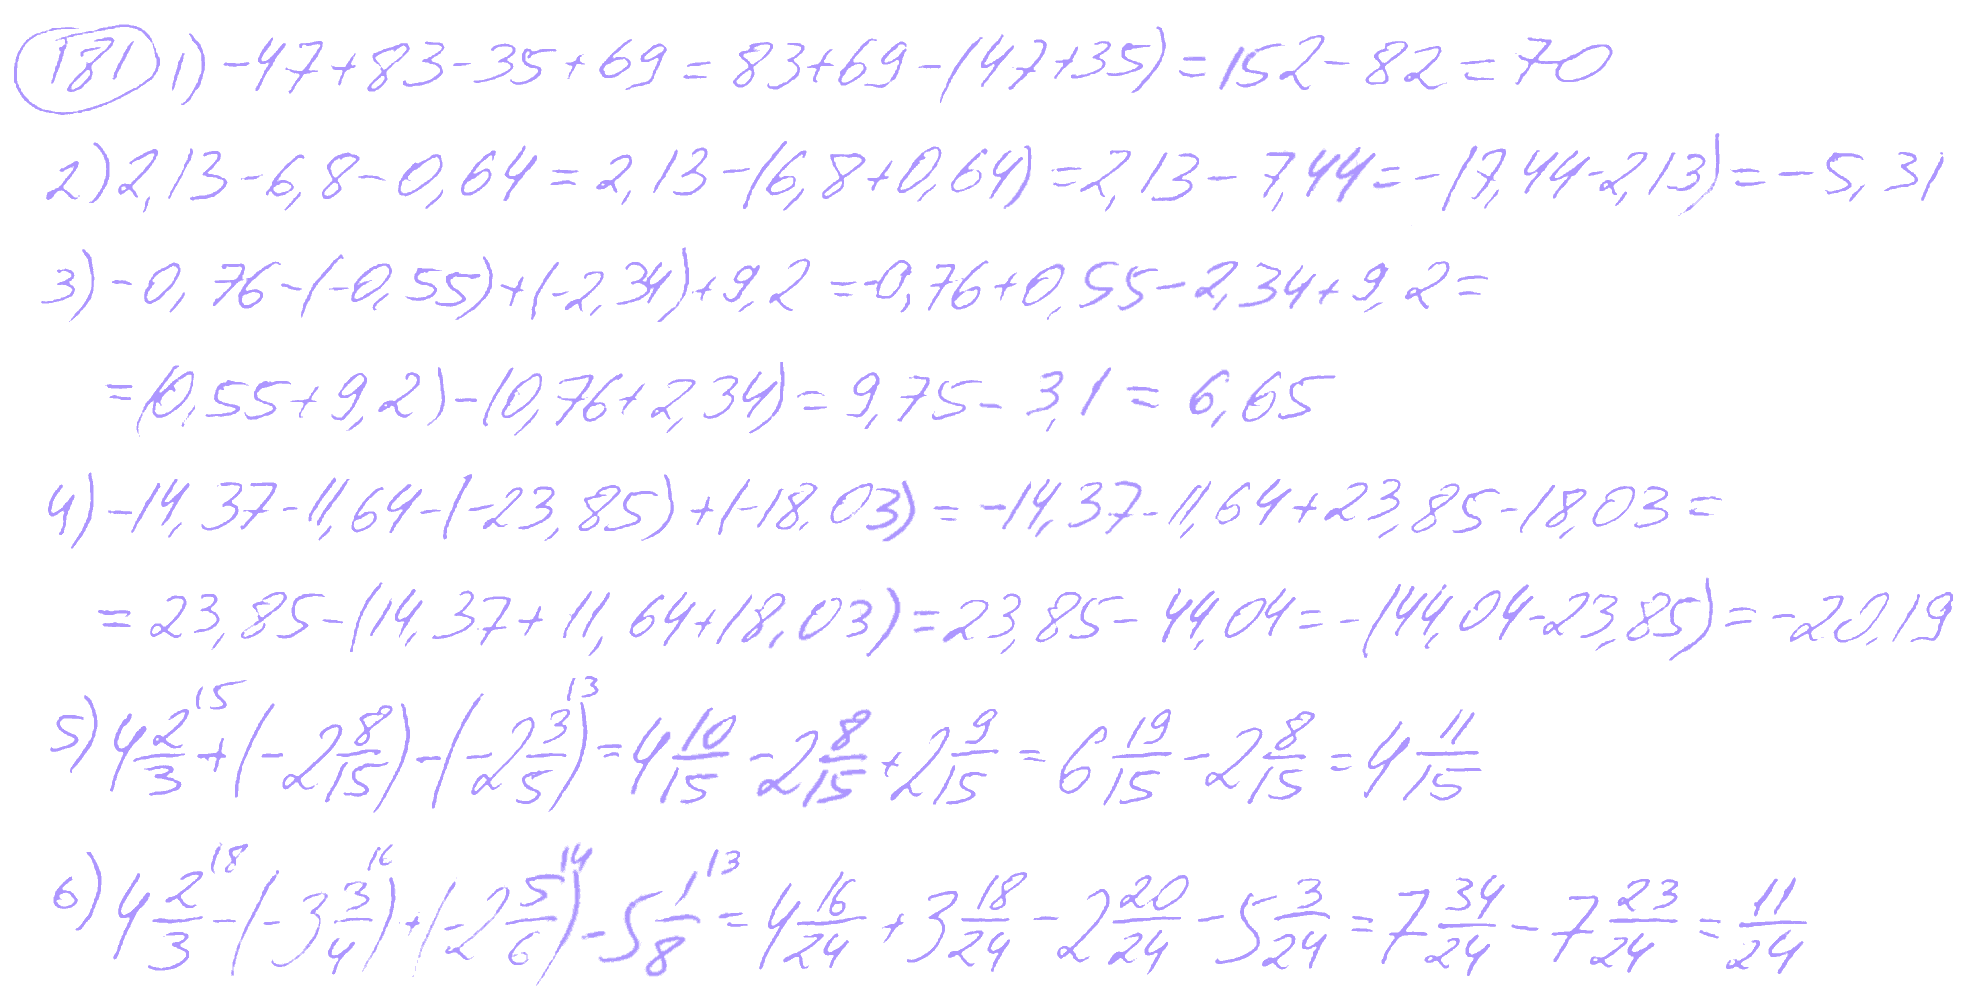 181 1) -47+83-35+69=83+69-(47+35)=152-82=70
2) 2,13-6,8-0,64=2,13-(6,8+0,64)=2,13-7,44=-(7,44-2,13)=-5,31
3) -0,76-(-0,55)+(-2,34)+9,2=-0,76+0,55-2,34+9,2=
=(0,55+9,2)-(0,76+2,34)=9,75-3,1=6,65
4) -14,37-11,64-(-23,85)+(-18,03)=-14,37-11,64+23,85-18,03=
=23,85-(14,37+11,64+18,03)=23,85-44,04=-(44,04-23,85)=-20,19
5) 4 2/3 ^15 + (-2 8/15) - (-2 3/5 ^13) = 4 10/15 - 2 8/15 + 2 9/15 = 6 19/15 - 2 8/15 = 4 11/15
6) 4 2/3 ^18 - (-3 3/4 ^16) + (-2 5/6 ^14) - 5 1/8 ^13 = 4 16/24 + 3 18/24 - 2 20/24 - 5 3/24 = 7 34/24 - 7 23/24 = 11/24